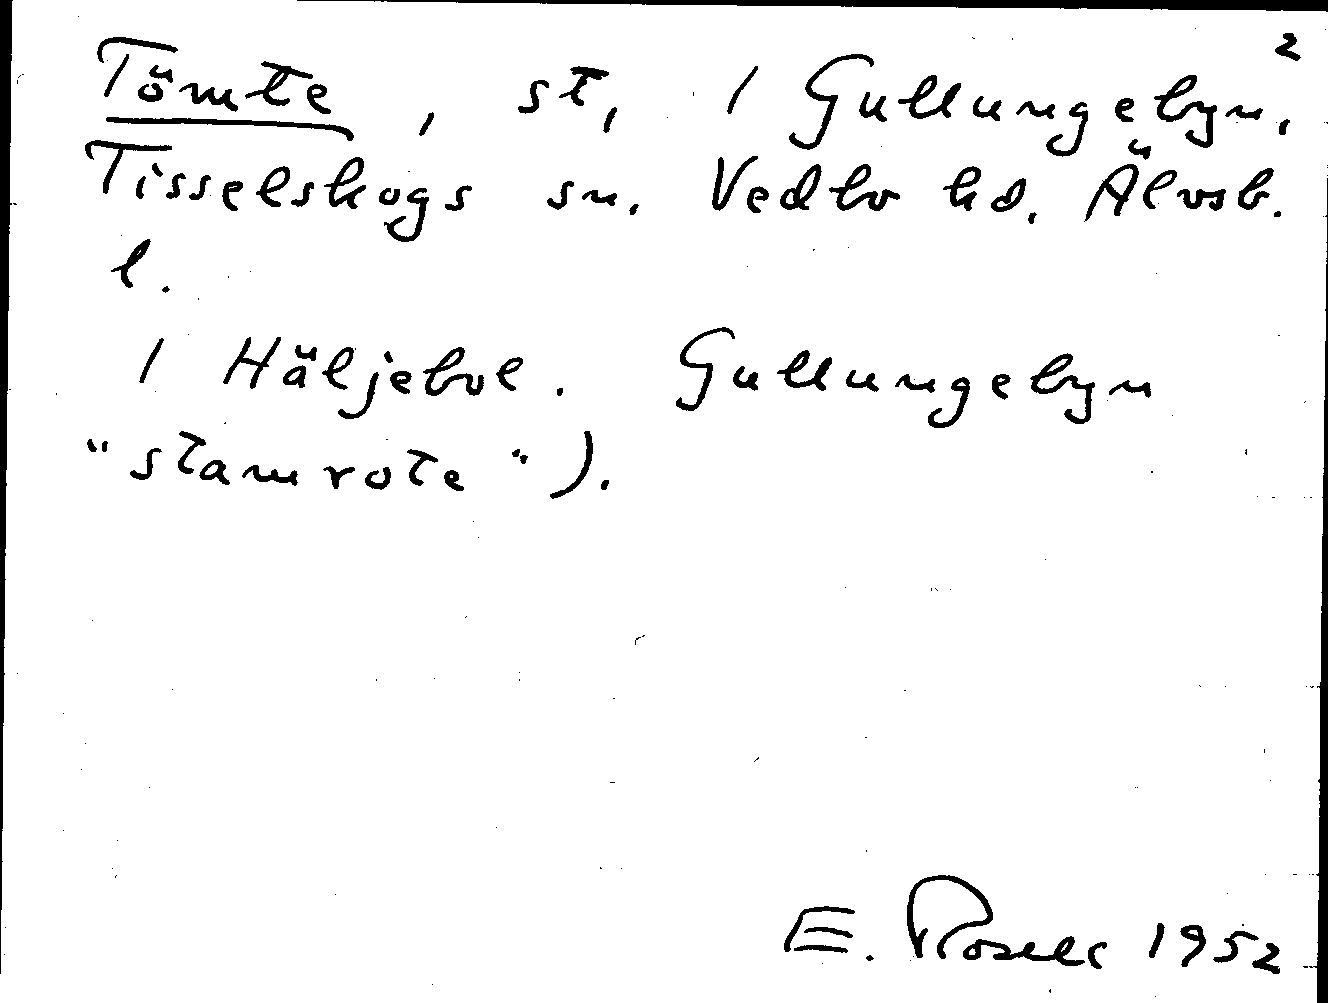 2
Tömte, st, 1 Gullungebyn,
Tisselskogs sn. Vedbo hd. Älvsb.
l.
1 Häljebol. Gullungebyn
"stamrote").
E. Rosell 1952